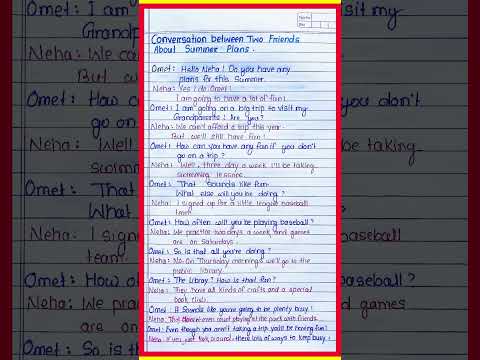 Omet: I am
Grandpa
Neha: We ca
But we
Omet: How ca
go on a
Neha: Well,
swimm
Omet: "That
What
Neha: I signe
team.
Omet: How
Neha: We pr
are on
Omet: So, is tha
Conversation between Two Friends
About Summer Plans.
Omet: Hello Neha! Do you have any
plans for this Summer.
Neha: Yes I do Omet!
I am going to have a lot of fun!
Omet: I am going on a big trip to visit my
Grandparents! Are you?
Neha: We can't afford a trip this year.
But we'll still have fun!
Omet: How can you have any fun if you don't
go on a trip?
Neha: Well, three day a week I'll be taking
swimming lessons.
Omet: "That Sounds like fun.
What else will you be doing?
Neha: I signed up for a little league baseball
team.
Omet: How often will you be playing baseball?
Neha: We practice two days a week and games
are on Saturdays.
Omet: So, is that all you're doing?
Neha: No. On Thursday mornings we'll go to the
public library.
Omet: The Library? How is that fun?
Neha: They have all kinds of crafts and a special
book club.
Omet: It Sounds like you're going to be plenty busy!
Neha: playing at the park with friends.
Omet: Even though you aren't taking a trip you'll be having fun!
Neha: If you just look around, there lots of ways to keep busy!
visit my
ear.
u don't
taking
?
baseball
eball?
games